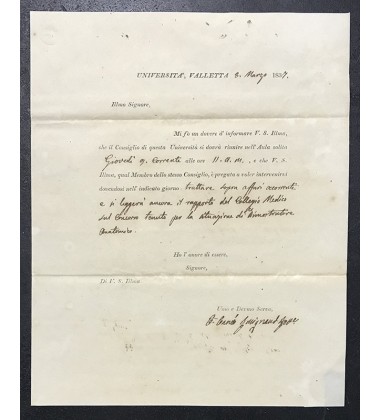 UNIVERSITA', VALLETTA 8. Marzo 1837.
Illmo Signore,
Mi fo un dovere d'informare V. S. Illma,
che il Consiglio di questa Università si dovrà riunire nell'Aula solita
Giovedì 9. Corrente alle ore 11. a.m., e che V. S.
Illma, qual Membro dello stesso Consiglio, è pregata a voler intervenirvi
dovendosi nell'indicato giorno trattare sopra affari occorrenti
e si leggerà ancora il rapporto del Collegio Medico
sul Concorso tenuto per la situazione di Dimostratore
Anatomico.
Ho l'onore di essere,
Signore,
Di V. S. Illma
Umo e Devmo Servo,